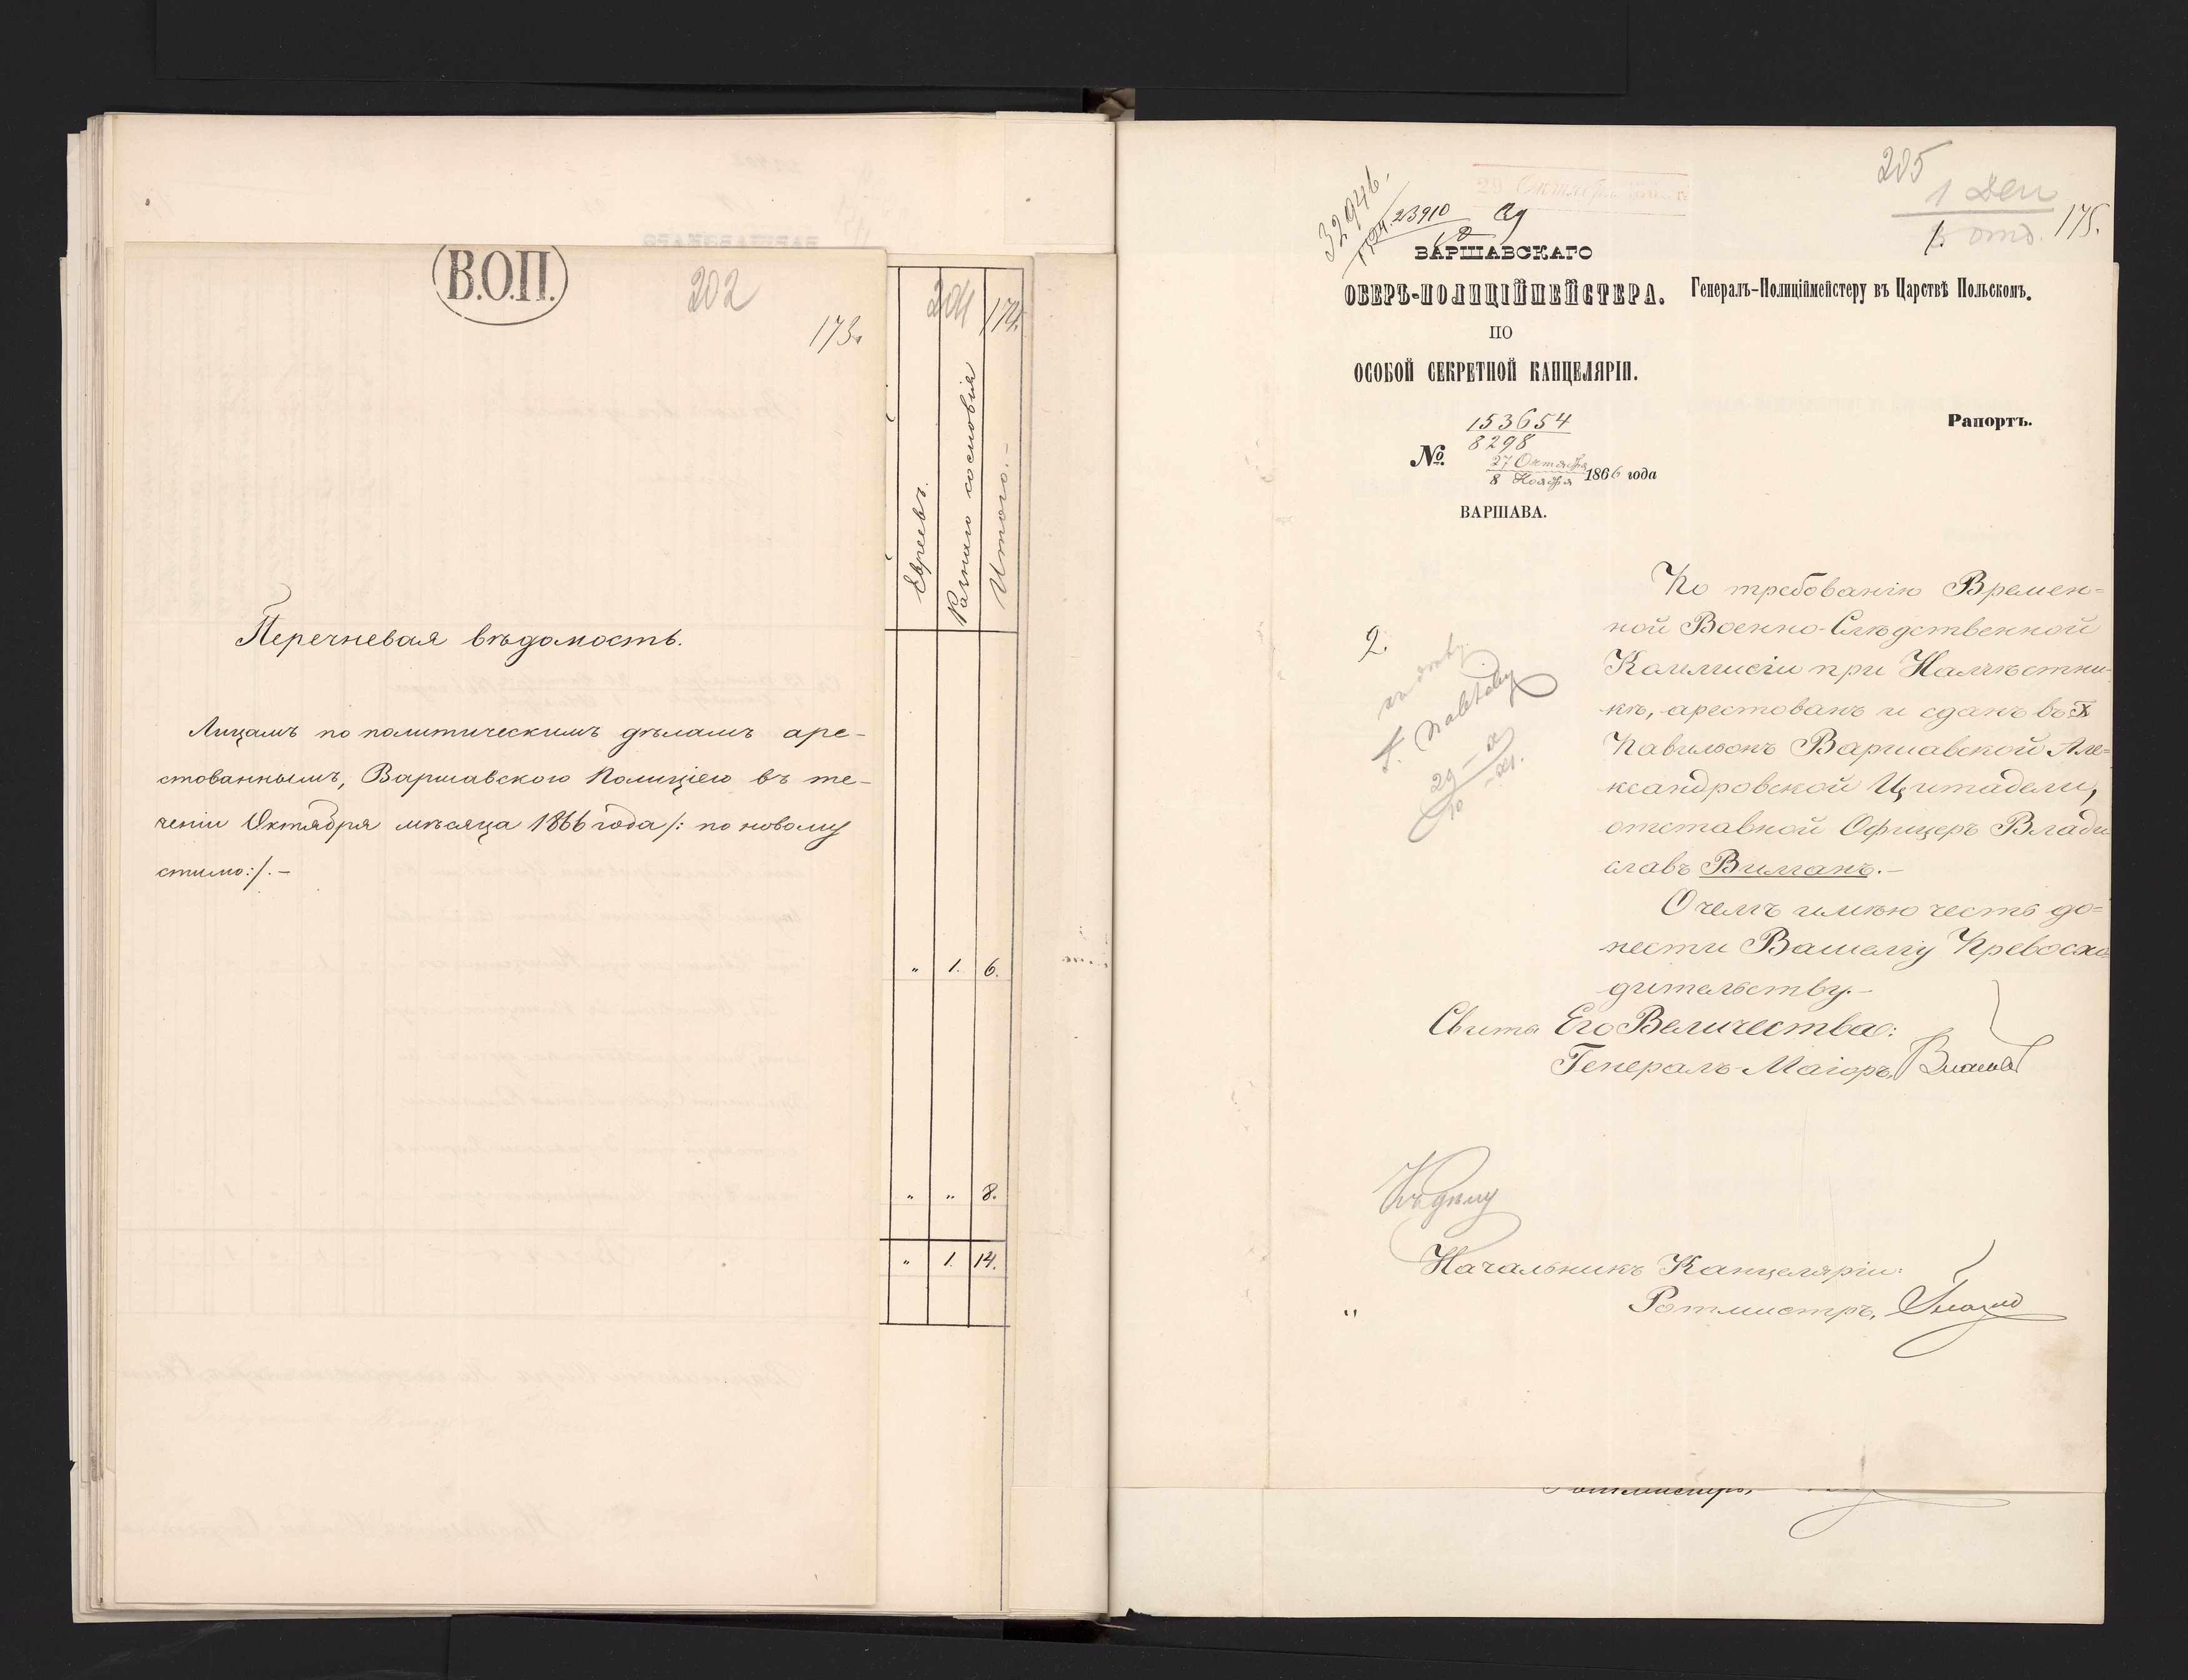 В.О.П.
202
173.
Перечневая вѣдомость.
Лицамъ по политическимъ дѣламъ аре-
стованнымъ, Варшавскою Полиціею въ те-
ченіи Октября мѣсяца 1866 года /: по новому
стилю :/. —
204
174.
Евреевъ.
Разнаго сословія
Итого. —
„ 1. 6.
„ „ 8.
„ 1. 14.
205
1 Деп
1. отд.
175.
32946.
23910
29 Октября 186
ВАРШАВСКАГО
ОБЕРЪ-ПОЛИЦІЙМЕЙСТЕРА.
ПО
ОСОБОЙ СЕКРЕТНОЙ КАНЦЕЛЯРІИ.
153654
№ 8298
27 Октября
8 Ноября 1866 года
ВАРШАВА.
Генералъ-Полиціймейстеру въ Царствѣ Польскомъ.
Рапортъ.
2.
По требованію Времен=
ной Военно-Слѣдственной
Коммисіи при Намѣстни-
кѣ, арестованъ и сданъ въ X
Павильонъ Варшавской Але=
ксандровской Цитадели,
отставной Офицеръ Влади
славъ Виманъ. —
О чемъ имѣю честь до=
нести Вашему Превосхо=
дительству. —
Свиты Его Величества:
Генералъ-Маіоръ,
Къ дѣлу
Начальникъ Канцеляріи:
Ротмистръ,
Ротмистръ,